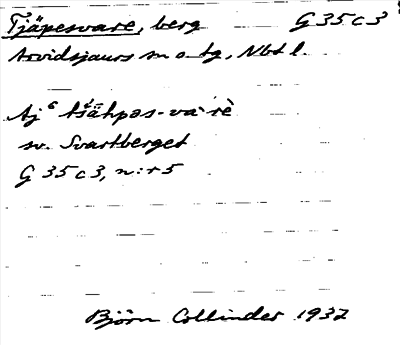 Tjäpesvare, berg G 35 c 3
Arvidsjaurs sn o. tg, Nbtl.
Aj
sv. Svartberget
G 35 c 3, n:r 5
Björn Collinder 1932